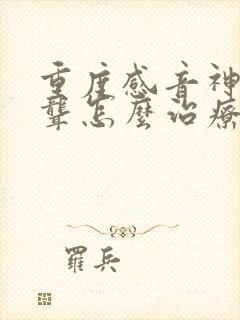 重度感音神
聾怎麼治療
羅兵